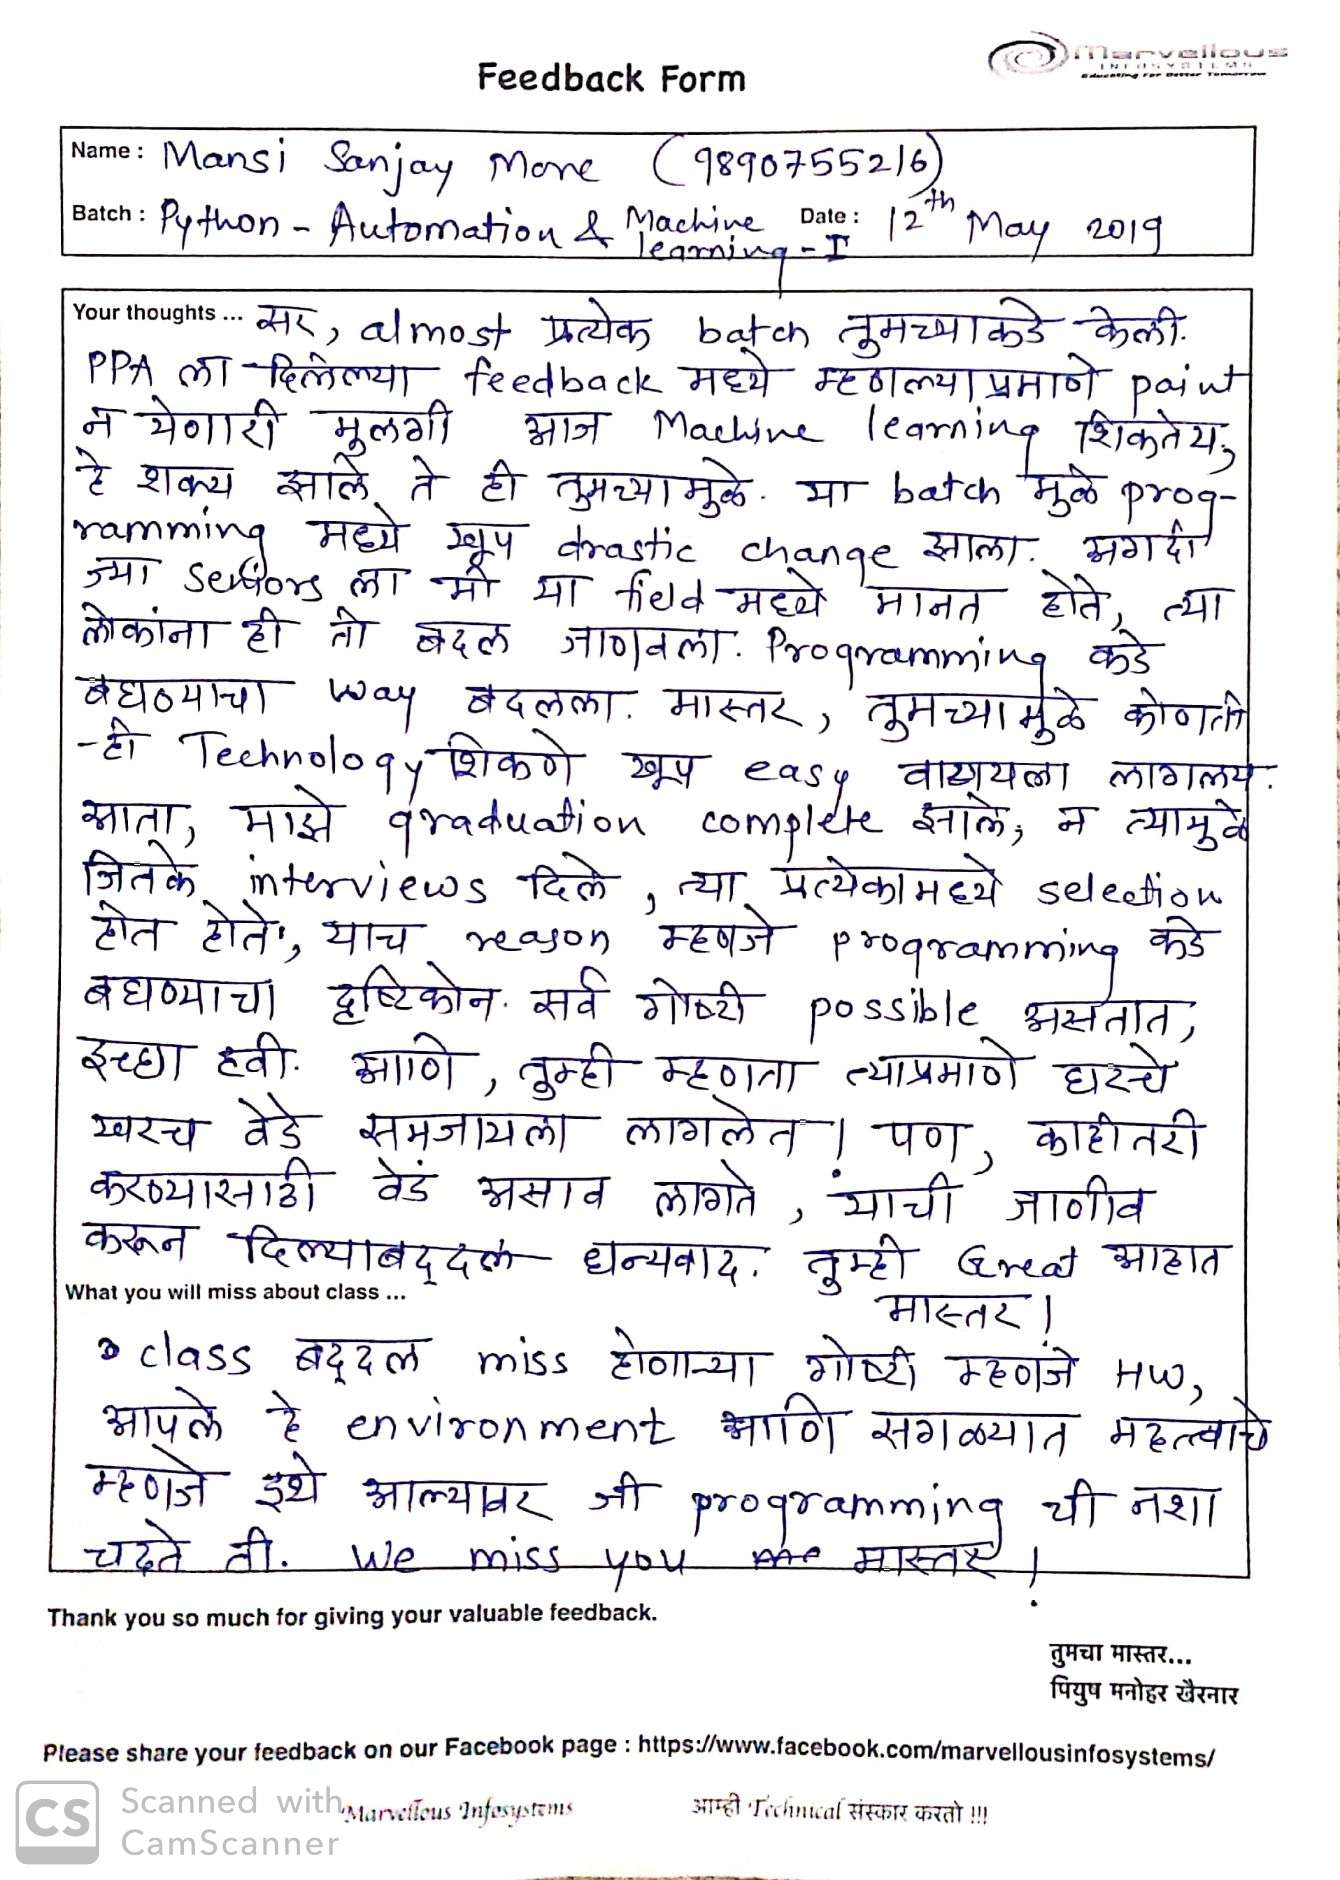 Marvellous
INFOSYSTEMS
Educating For Better Tomorrow
Feedback Form
Name : Mansi Sanjay More (9890755216)
Batch : Python - Automation & Machine learning - I Date : 12th May 2019
Your thoughts ... सर, almost प्रत्येक batch तुमच्याकडे केली.
PPA ला दिलेल्या feedback मध्ये म्हणल्याप्रमाणे paint
न येणारी मुलगी आज Machine learning शिकतेय,
हे शक्य झाले ते ही तुमच्यामुळे. या batch मुळे prog-
ramming मध्ये खूप drastic change झाला. अगदी
ज्या seniors ला मी या field मध्ये मानत होते, त्या
लोकांना ही तो बदल जाणवला. Programming कडे
बघण्याचा way बदलला. मास्तर, तुमच्यामुळे कोणती
-ही Technology शिकणे खूप easy वाटायला लागलय.
आता, माझे graduation complete झाले, न त्यामुळे
जितके interviews दिले, त्या प्रत्येकामध्ये selection
होत होते, याच reason म्हणजे programming कडे
बघण्याचा दृष्टिकोन. सर्व गोष्टी possible असतात,
इच्छा हवी. आणि, तुम्ही म्हणता त्याप्रमाणे घरचे
खरच वेडे समजायला लागलेत! पण, काहीतरी
करण्यासाठी वेडं असाव लागते, याची जाणीव
करून दिल्याबद्दल धन्यवाद. तुम्ही Great आहात
मास्तर!
What you will miss about class ...
class बद्दल miss होणाऱ्या गोष्टी म्हणजे HW,
आपले हे environment आणि सगळ्यात महत्वाचे
म्हणजे इथे आल्यावर जी programming ची नशा
चढते ती. We miss you मास्तर!
Thank you so much for giving your valuable feedback.
तुमचा मास्तर...
पियुष मनोहर खैरनार
Please share your feedback on our Facebook page : https://www.facebook.com/marvellousinfosystems/
Marvellous Infosystems आम्ही Technical संस्कार करतो !!!
CS Scanned with
CamScanner